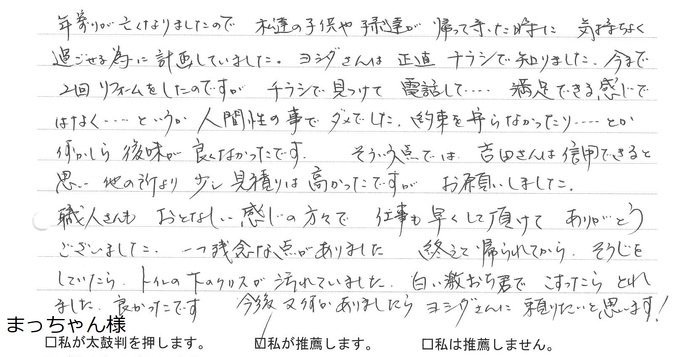 年寄りが亡くなりましたので 私達の子供や子孫達が 帰って来た時に 気持ちよく
過ごせる為に計画していました。ヨシダさんは 正直 チラシで知りました。今まで
2回リフォームをしたのですが チラシで見つけて 電話して‥‥ 満足できる感じで
はなく‥‥というか 人間性の事で ダメでした、約束を守らなかったり‥‥とか
何かしら 後味が 良くなかったです。 そういう点では 吉田さんは信用できると
思い 他の所より 少し見積りは高かったですが お願いしました。
職人さんも おとなしい感じの方々で 仕事も早くして頂けて ありがとう
ございました。一つ残念な点がありました 終えて帰られてから、そうじを
していたら、トイレの下のクロスが汚れていました、白い激おち君で こすったら とれ
ました。良かったです 今後又何かありましたら ヨシダさんに 頼りたいと思います!
まっちゃん様
□私が太鼓判を押します。 ☑私が推薦します。 □私は推薦しません。